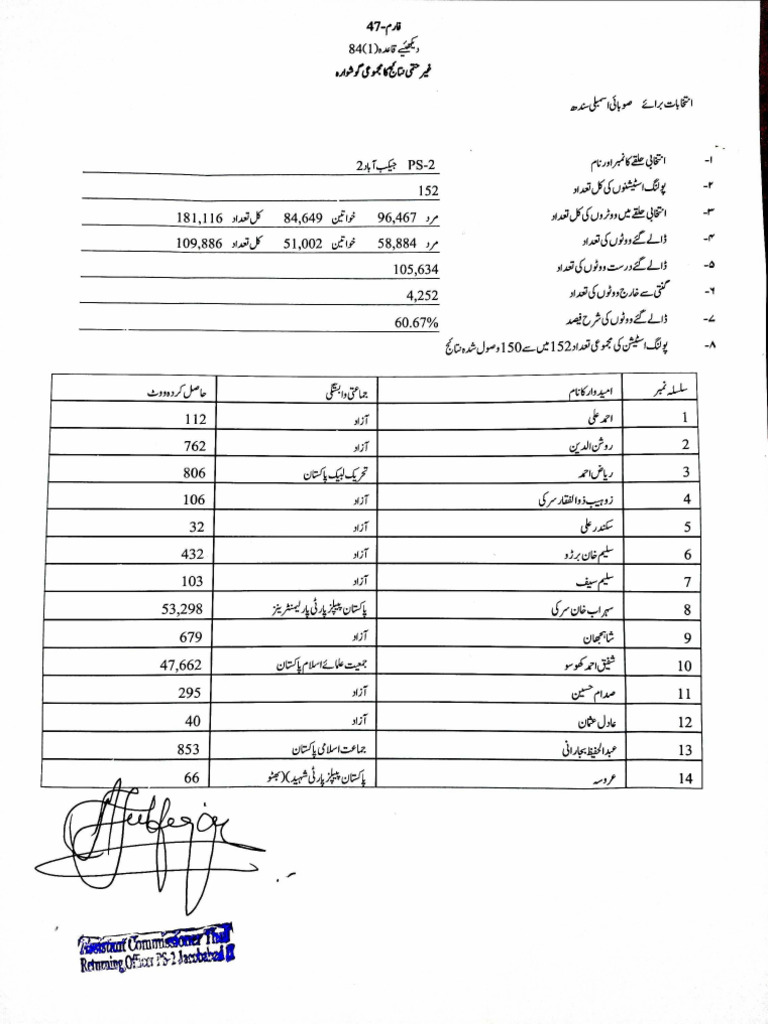 فارم-47
دیکھئیے قاعدہ (1)84
غیر حتمی نتائج کا مجموعی گوشوارہ
انتخابات برائے صوبائی اسمبلی سندھ
۱- انتخابی حلقے کا نمبر اور نام PS-2 جیکب آباد 2
۲- پولنگ اسٹیشنوں کی کل تعداد 152
۳- انتخابی حلقے میں ووٹروں کی کل تعداد مرد 96,467 خواتین 84,649 کل تعداد 181,116
۴- ڈالے گئے ووٹوں کی تعداد مرد 58,884 خواتین 51,002 کل تعداد 109,886
۵- ڈالے گئے درست ووٹوں کی تعداد 105,634
۶- گنتی سے خارج ووٹوں کی تعداد 4,252
۷- ڈالے گئے ووٹوں کی شرح فیصد 60.67%
۸- پولنگ اسٹیشن کی مجموعی تعداد 152 میں سے 150 وصول شدہ نتائج
سلسلہ نمبر امیدوار کا نام جماعتی وابستگی حاصل کردہ ووٹ
1 احمد علی آزاد 112
2 روشن الدین آزاد 762
3 ریاض احمد تحریک لبیک پاکستان 806
4 زوہیب ذوالفقار سرکی آزاد 106
5 سکندر علی آزاد 32
6 سلیم خان برڑو آزاد 432
7 سلیم سیف آزاد 103
8 سہراب خان سرکی پاکستان پیپلز پارٹی پارلیمنٹرینز 53,298
9 شاہجھان آزاد 679
10 شفیق احمد کھوسو جمعیت علمائے اسلام پاکستان 47,662
11 صدام حسین آزاد 295
12 عادل عثمان آزاد 40
13 عبدالحفیظ بجارانی جماعت اسلامی پاکستان 853
14 عروسہ پاکستان پیپلز پارٹی شہید)(بھٹو 66
Assistant Commissioner Thul
Returning Officer PS-2 Jacobabad II